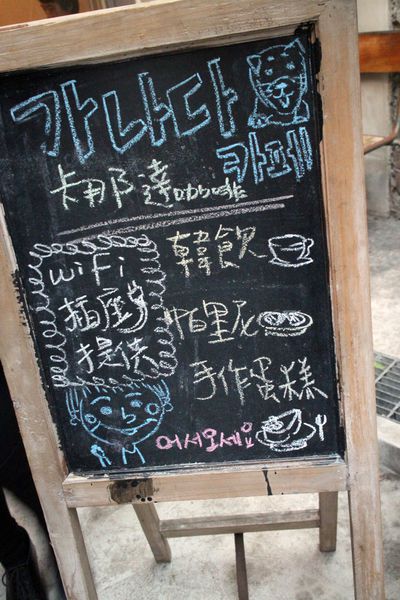 가나다
카페
卡那達咖啡
wifi
插座
提供
韓飲
帕里尼
手作蛋糕
어서오세요